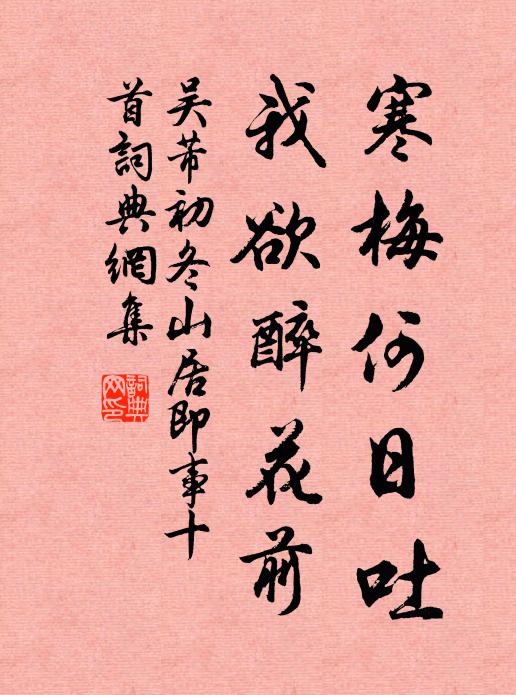 寒梅何日吐
我欲醉花前
吳芾初冬山居即事十
首詞典網集
詞典網印